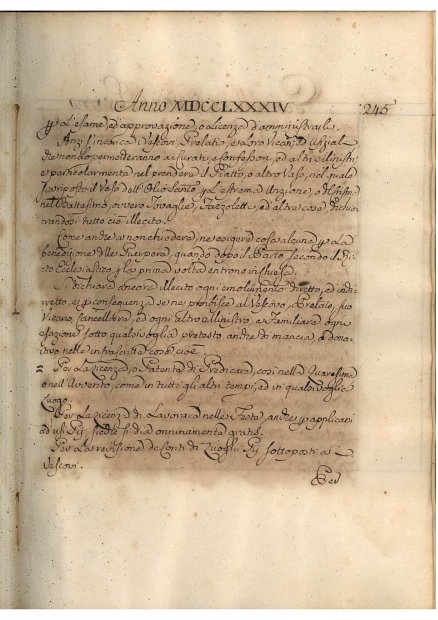 Anno MDCCLXXXIV 245
L'esame, ed approvazione, o Licenza d'amministrarli.
Anzi s'incarica Vescovi, Prelati, e Loro Vicari, ed Ufizali
che non permetteranno a Curati, Confessori, ed altri Ministri
e particolarmente nel prendere il Piatto, o altro Vaso, nel quale
ha riposto il Vaso dell'Olio Santo, L'estrema Unzione, o
nel Battesimo, ovvero Tovaglie, Fazzoletti, ed altre cose dichia
rando tutto ciò illecito.
Come anche a non chiedere, ne esigere cosa alcuna La
benedizione delle Puerpere, quando dopo il Parto secondo il Ri
to Ecclesiastico la prima volta entrono in chiesa.
Si dichiara ancora illecito ogni emolumento diretto, ed indi
retto, e conseguenza se ne proibisce al Vescovo, Prelato, suo
Vicario Cancelliere, ed ogni altro Ministro, e Familiare ogni
esazione sotto qualsivoglia pretesto anche di mancia, o dona
tivo nelle infrascritte cose cioè
= Per La licenza, o Patente di Predicare, così nella Quaresima
o nell'Avvento, come in tutti gli altri tempi, ed in qualsivoglia
Luogo.
Per La licenza di Lavorare nelle Feste, anche applicarsi
ad usi Pij si dia onninamente gratis.
Per La revisione de Conti di Luoghi Pij sottoposti a
Vescovi.
Per